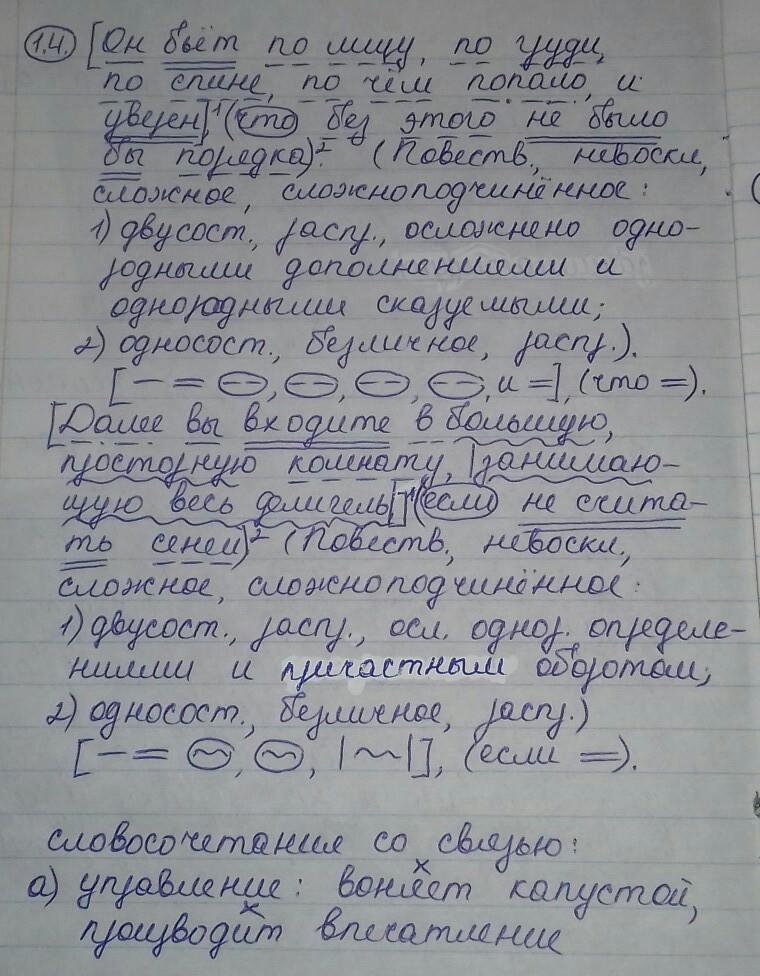 1.4. [Он бьёт по лицу, по груди,
по спине, по чём попало, и
уверен]¹, (что без этого не было
бы порядка)². (Повеств., невоскл.,
сложное, сложноподчинённое:
1) двусост., распр., осложнено одно-
родными дополнениями и
однородными сказуемыми;
2) односост., безличное, распр.).
[— = , , , , и =], (что =).
[Далее вы входите в большую,
просторную комнату, |занимаю-
щую весь флигель|]¹, (если не счита-
ть сеней)² (Повеств., невоскл.,
сложное, сложноподчинённое:
1) двусост., распр., осл. однор. определе-
ниями и причастным оборотом;
2) односост., безличное, распр.)
[— = ~, ~, |~|], (если =).
словосочетания со связью:
а) управление: воняет капустой,
производит впечатление